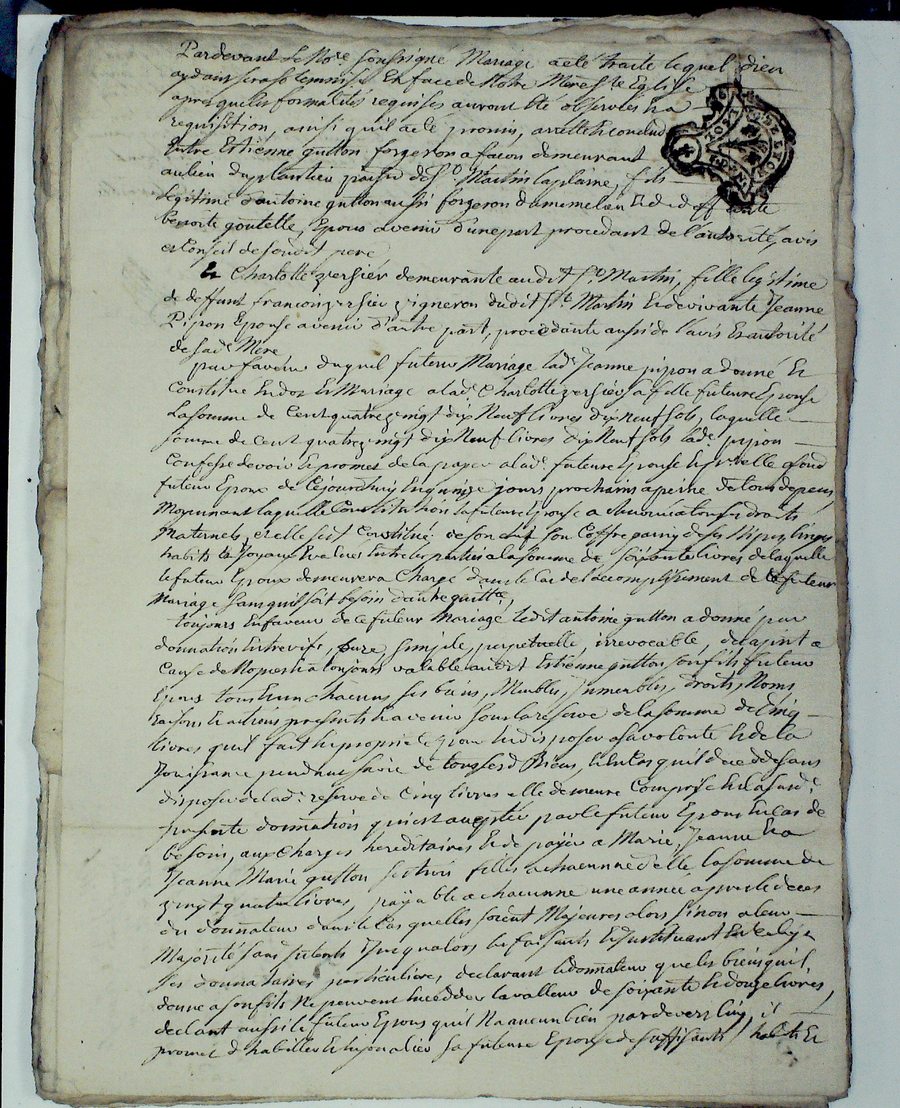 Pardevant Le No.re Soussigné Mariage a eté traité lequel dieu
aydant sera solemnisé En face de Notre Mere S.te Eglise
apres que les formalités requises auront été observées Et a
requisition, ainsi qu'il a eté promis, arretté Et conclud
Entre Estienne gutton forgeron a facon demeurant
au lieu du plantier paroisse de S.t Martin la plaine, fils
Legitime d'antoine gutton aussi forgeron dud meme lieu Et de deffunte
benoite goutelle, Epoux avenir d'une part procedant de l'autorité, avis
et Conseil de sondit pere
Et Charlotte zersier demeurante audit S.t Martin, fille legitime
de deffunt francois zersier vigneron dudit S.t Martin Et de vivante Jeanne
Pipon Epouse avenir d'autre part, procedante aussi de l'avis Et autorité
de sad.e Mere
par faveur duquel futeur Mariage lad.e Jeanne pipon a donné Et
Constitué En dot Et Mariage a lad.e Charlotte zersier sa fille future Epouse
La somme de Cent quatre vingt dix Neuf livres dix neuf sols, laquelle
somme de Cent quatre vingt dix Neuf livres dix Neuf sols lad.e pipon
Confesse devoir Et promet de la payer a lad.e future Epouse
futeur Epoux de Cejourdhuy En quinze jours prochains a peine de tous depens
Moyennant laquelle Constitution la future Epouse a Renoncé a tous droits
Maternels, et elle s'est Constitué de son chef son Coffre garny de ses Nipes, linges
habits Et Joyaux Evalues Entre les parties a la somme de soixante livres de laquelle
le futeur Epoux demeurera Chargé dans le Cas de l'accomplissement de Ce futeur
Mariage sans qu'il soit besoin d'autre quitt.ce
Toujours En faveur de Ce futeur Mariage ledit antoine gutton a donné par
donnation Entrevifs, pure, simple, perpetuelle, irrevocable, a
Cause de Et a toujours valable audit Estienne gutton son fils futeur
Epoux tous Et un chacuns ses biens, Meubles, immeubles, droits, Noms
raisons Et actions presents Et avenir sous la reserve de la somme de Cinq
livres qu'il fait En proprieté pour En disposer a sa volonté Et de la
Jouissance pendant sa vie de tous sesd.s Biens, Et En Cas qu'il decedde sans
disposer de lad.e reserve de Cinq livres elle demeure Comprise En la susd.e
presente donnation qui est acceptée par le futeur Epoux En Cas de
besoin, aux Charges hereditaires Et de payer a Marie, Jeanne Et a
Jeanne Marie gutton ses trois filles a chacunne d'elle la somme de
vingt quatre livres, payable a chacunne une année apres le deces
du donnateur dans le Cas quelles soient Majeures alors sinon a leur
Majorité sans Interets Jusqu'alors les faisant Et Instituant En
ses donnataires particulieres declarant le donnateur que les biens qu'il
donne a son fils Ne peuvent Exceder la valleur de soixante Et douze livres,
declarant aussi le futeur Epoux qu'il Na aucun bien pardevers luy, il
promet d'habiller Et Enjoualler sa future Epouse de suffisants habits Et